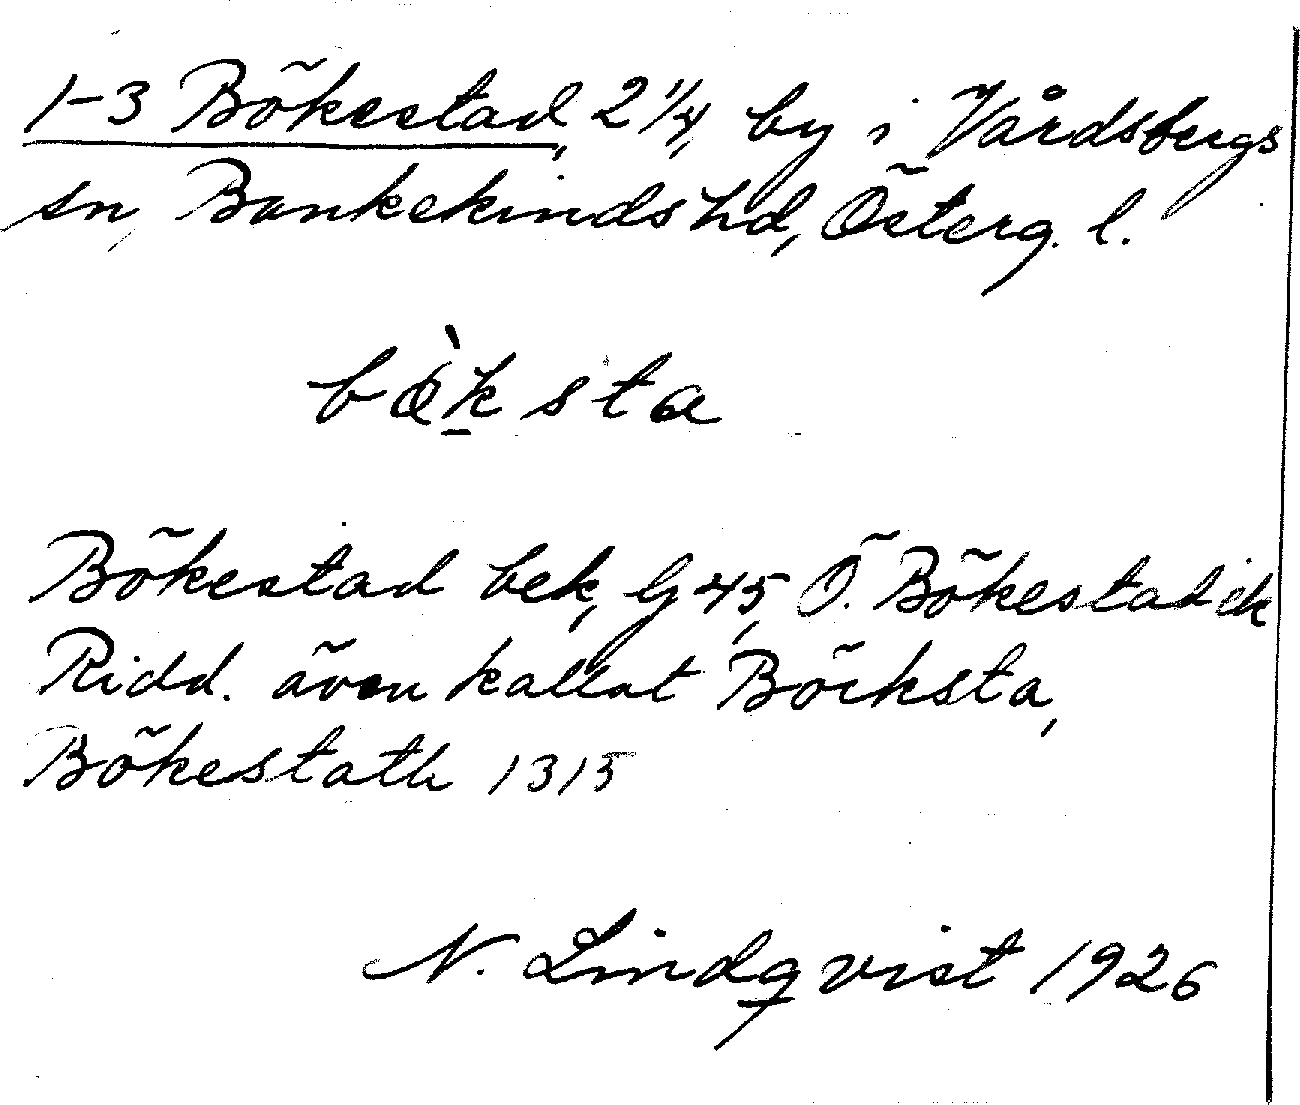 1-3 Bökestad, 2 1/4, by i Vårdsbergs
sn, Bankekinds hd, Österg. l.
bø̀ksta
Bökestad bek, G 45, Ö. Bökestad ek
Ridd. även kallat Böcksta,
Bökestath 1315
N. Lindqvist 1926